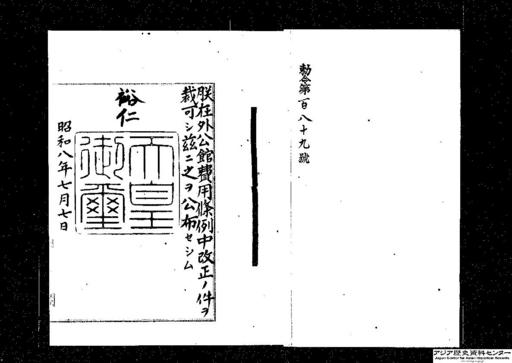 勅令第百八十九號
朕在外公館費用條例中改正ノ件ヲ
裁可シ茲ニ之ヲ公布セシム
裕仁
天皇
御璽
昭和八年七月七日
アジア歴史資料センター
Japan Center for Asian Historical Records